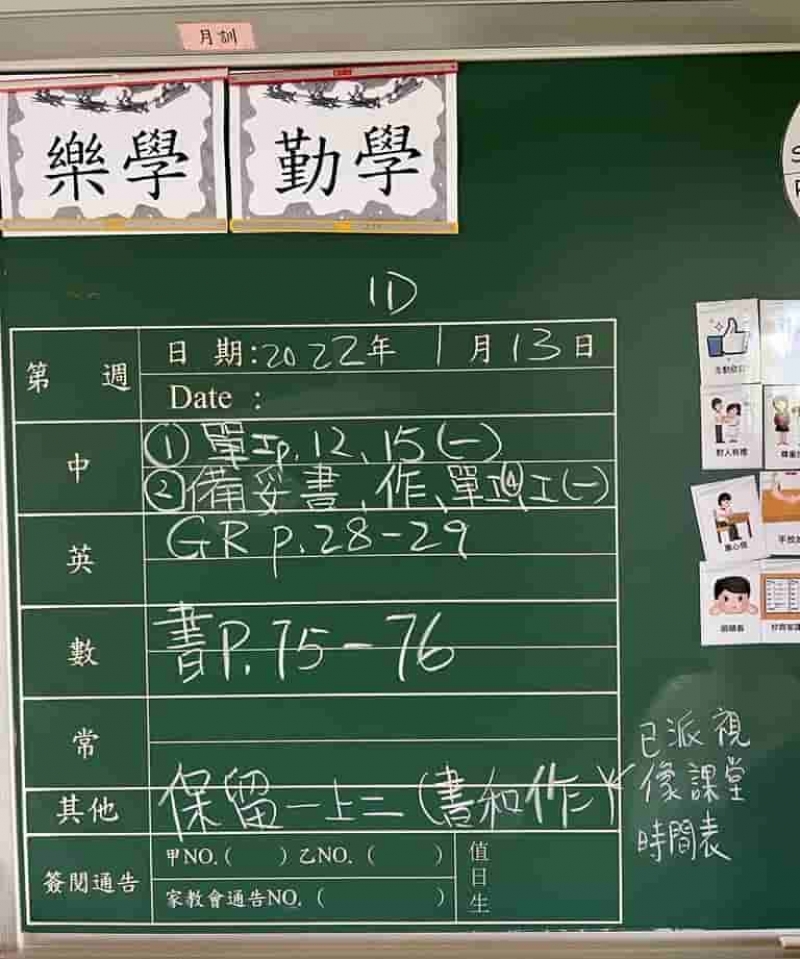 月訓
樂學
勤學
1D
第 週
日 期:2022年 1月13日
Date :
中
① 單工p.12、15(一)
②備妥書、作、單工④工(一)
英
GR p.28-29
數
書P.75-76
常
其他
保留一上二(書和作)
已派視
像課堂
時間表
簽閱通告
甲NO.( ) 乙NO.( )
家教會通告NO.( )
值日生
對人有禮